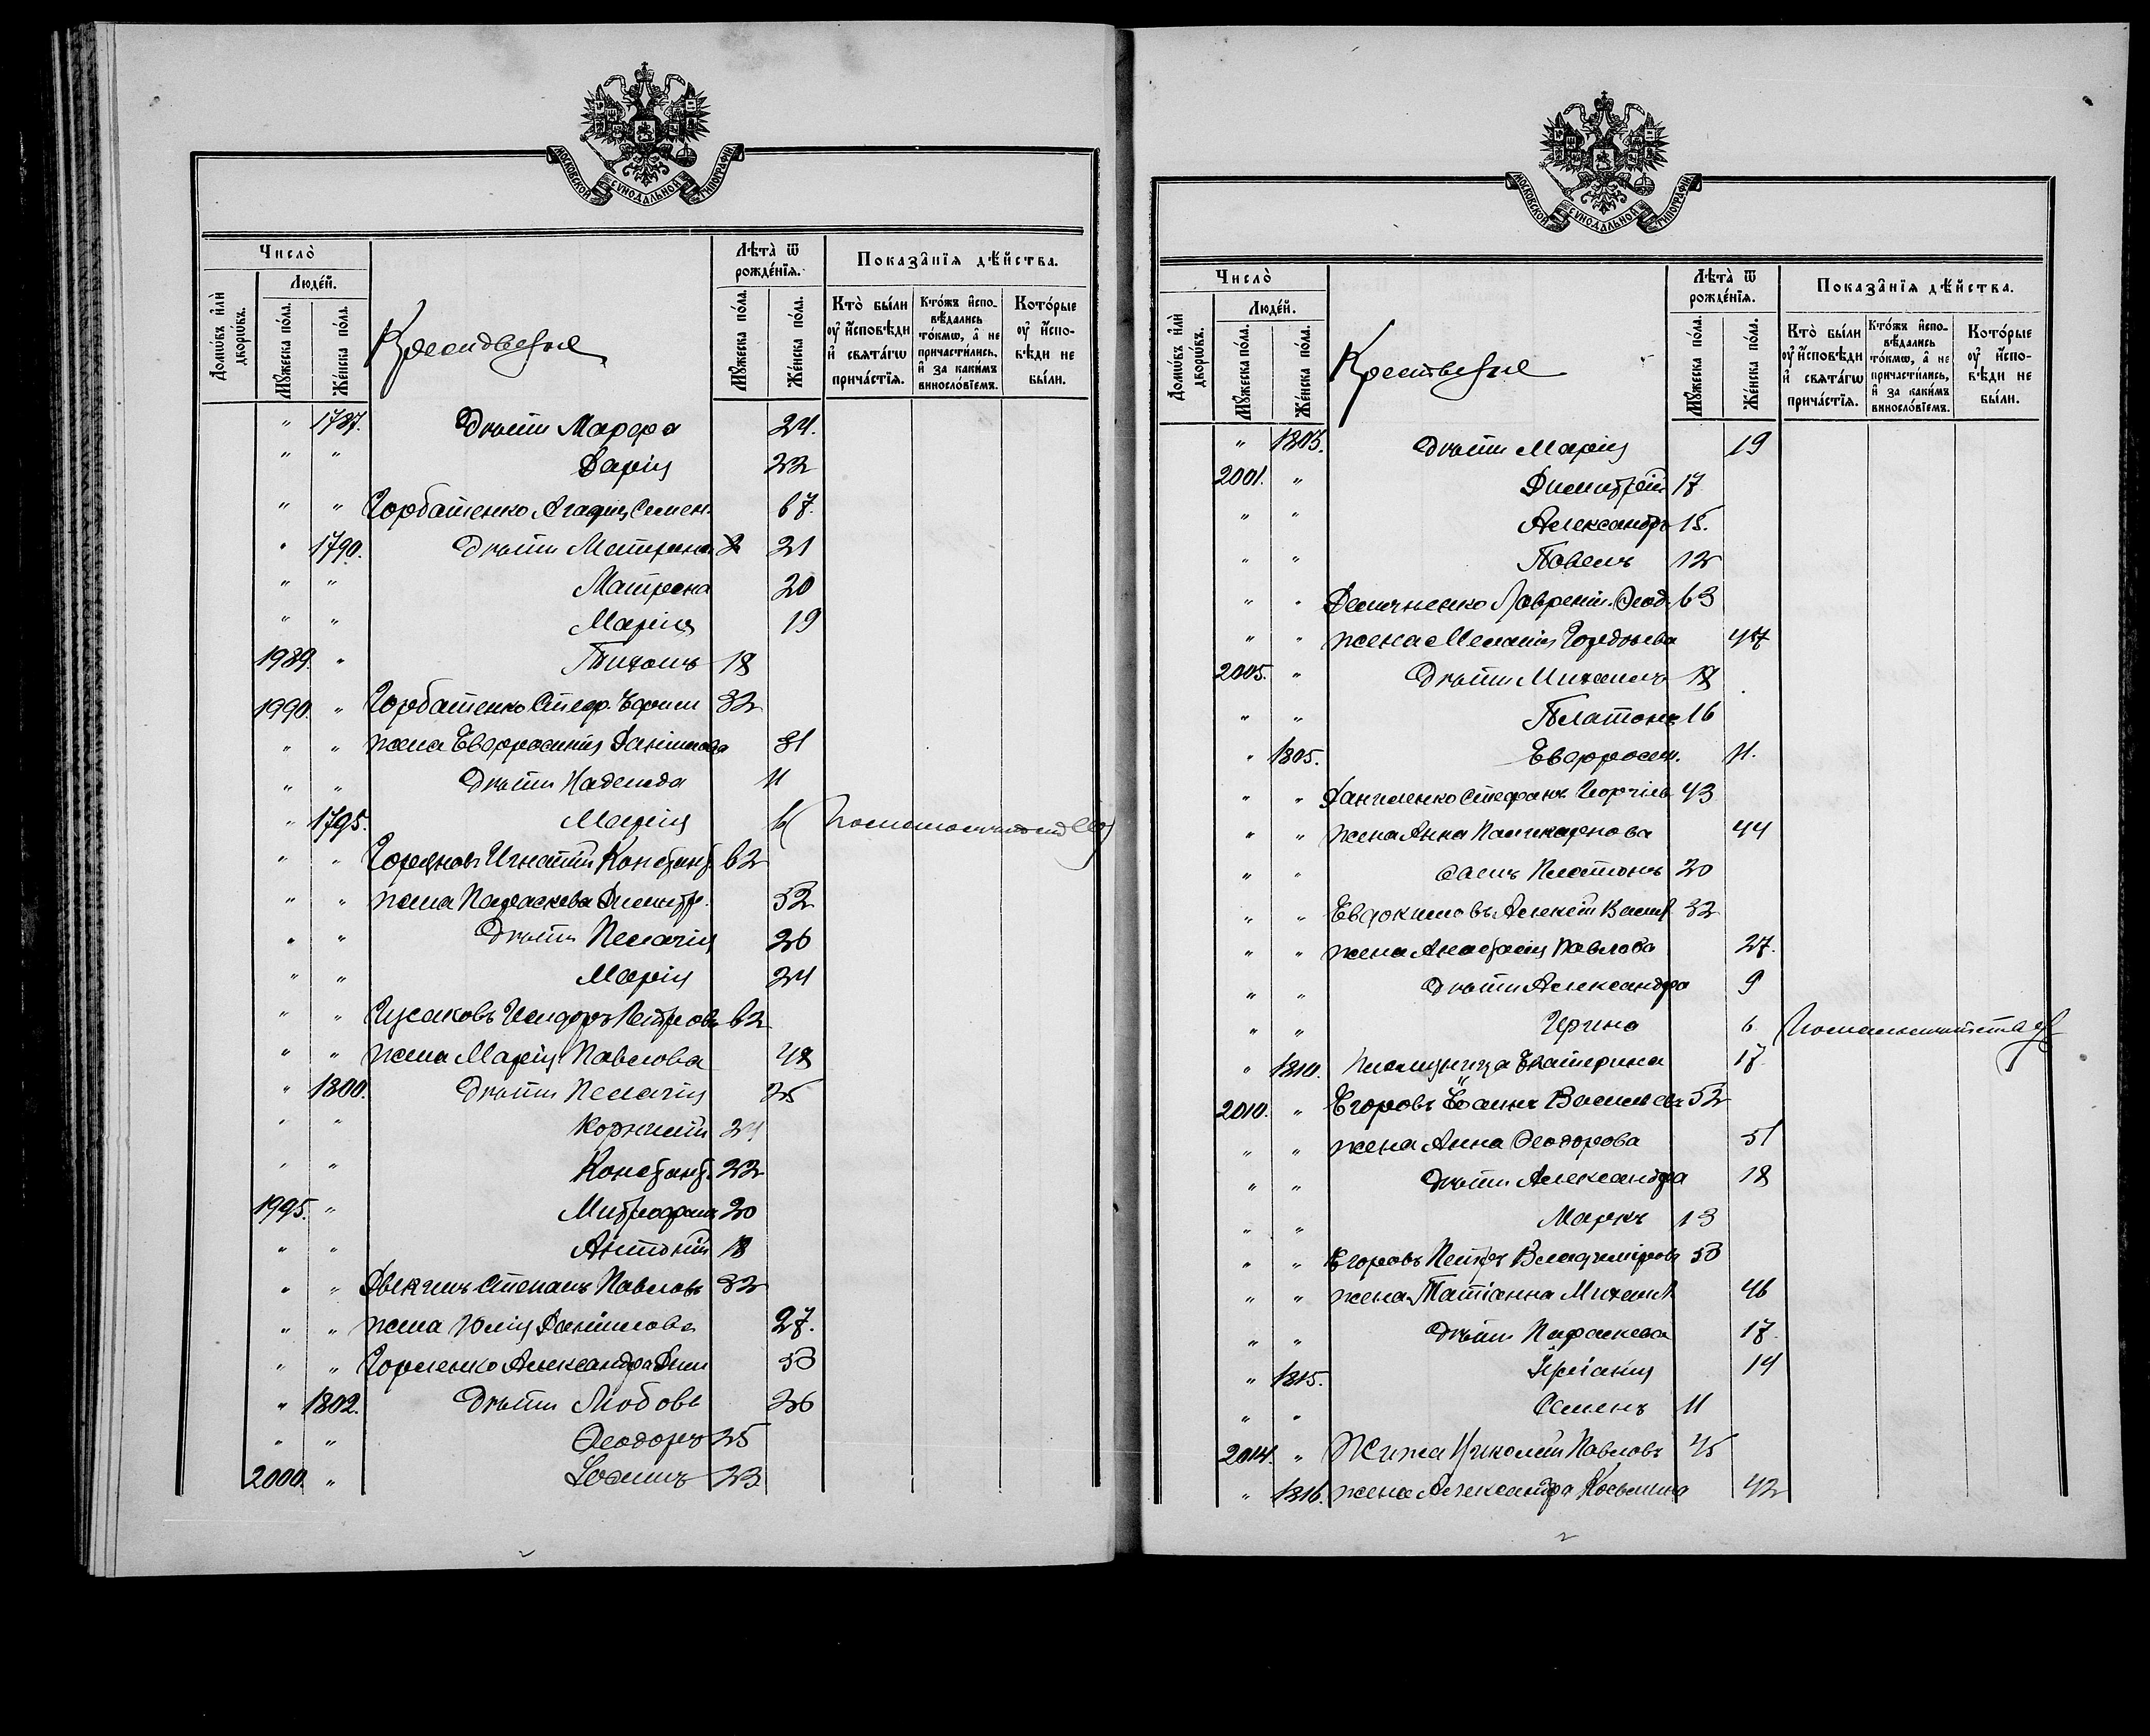 МОСКОВСКОЙ СУНОДАЛЬНОЙ ТИПОГРАФІИ
Число̀
Лѣта̀ ѿ рожде́нїѧ.
Показа̑нїѧ дѣ́йства.
Домѡ́въ и҆лѝ дворѡ́въ.
Люде́й.
Мꙋ́жеска по́ла.
Же́нска по́ла.
Мꙋ́жеска по́ла.
Же́нска по́ла.
Кто̀ бы́ли ᲂу҆ и҆́сповѣди и҆ свѧта́гѡ прича́стїѧ.
Кто́жъ и҆спо-
вѣ́дались то́кмѡ, а҆ не причасти́лись, и҆ за каки́мъ винословїемъ.
Кото́рые ᲂу҆ и҆́спо-
вѣди не бы́ли.
Крестьяне
" 1787. Дѣти Марфа 24.
" " Дарія 22
" " Горбатенко Агафія Семен. 67.
" 1790. Дѣти Матрона 21
" " Матрена 20
" " Марія 19
1989. " Тихонъ 18
1990. " Горбатенко Стеф. Ефим 32
" " жена Евфросинія Данилова 31
" " Дѣти Надежда 11
" 1795. Марія 6
" " Игнатій Констант. 62
" " жена Параскева Димитр. 52
" " Дѣти Пелагія 26
" " Марія 24
" " Гусаковъ Исидоръ Петровъ 62
" " жена Марія Павлова 48
" 1800. Дѣти Пелагія 25
" " Корнилій 24
" " Констант. 22
1995. " Митрофанъ 20
" " Антоній 18
" " Степанъ Павловъ 32
" " жена Юлія Данилова 27.
" " Горленко Александра Дим 53
" 1802. Дѣти Любовь 26
" " Ѳеодоръ 25
2000. " Іоаннъ 23
МОСКОВСКОЙ СУНОДАЛЬНОЙ ТИПОГРАФІИ
Число̀
Лѣта̀ ѿ рожде́нїѧ.
Показа̑нїѧ дѣ́йства.
Домѡ́въ и҆лѝ дворѡ́въ.
Люде́й.
Мꙋ́жеска по́ла.
Же́нска по́ла.
Мꙋ́жеска по́ла.
Же́нска по́ла.
Кто̀ бы́ли ᲂу҆ и҆́сповѣди и҆ свѧта́гѡ прича́стїѧ.
Кто́жъ и҆спо-
вѣ́дались то́кмѡ, а҆ не причасти́лись, и҆ за каки́мъ винословїемъ.
Кото́рые ᲂу҆ и҆́спо-
вѣди не бы́ли.
Крестьяне
" 1803. Дѣти Марія 19
2001. " Димитрій 17
" " Александръ 15.
" " Павелъ 12
" " Демченко Лаврентій Ѳеод. 63
" " жена Меланія Гордѣева 47
2005. " Дѣти Михаилъ 18
" " Платонъ 16
" 1805. Евфросин. 11.
" " Даниленко Стефанъ Георгіев 43
" " жена Анна Поликарпова 44
" " сынъ Платонъ 20
" " Евдокимовъ Алексѣй Васил 32
" " жена Анастасія Павлова 27.
" " Дѣти Александра 9
" " Ирина 6
" 1810. Племянница Екатерина 17
2010. " Егоровъ Іоаннъ Васильевъ 52
" " жена Анна Ѳеодорова 51
" " Дѣти Александра 18
" " Маркъ 13
" " Егоровъ Петръ Владиміровъ 53
" " жена Татіанна Михаил 46
" " Дѣти Параскева 17
" 1815. 14
" " Семенъ 11
2014. " Жижа Николай Павловъ 45
" 1816. жена Александра Косьмина 42